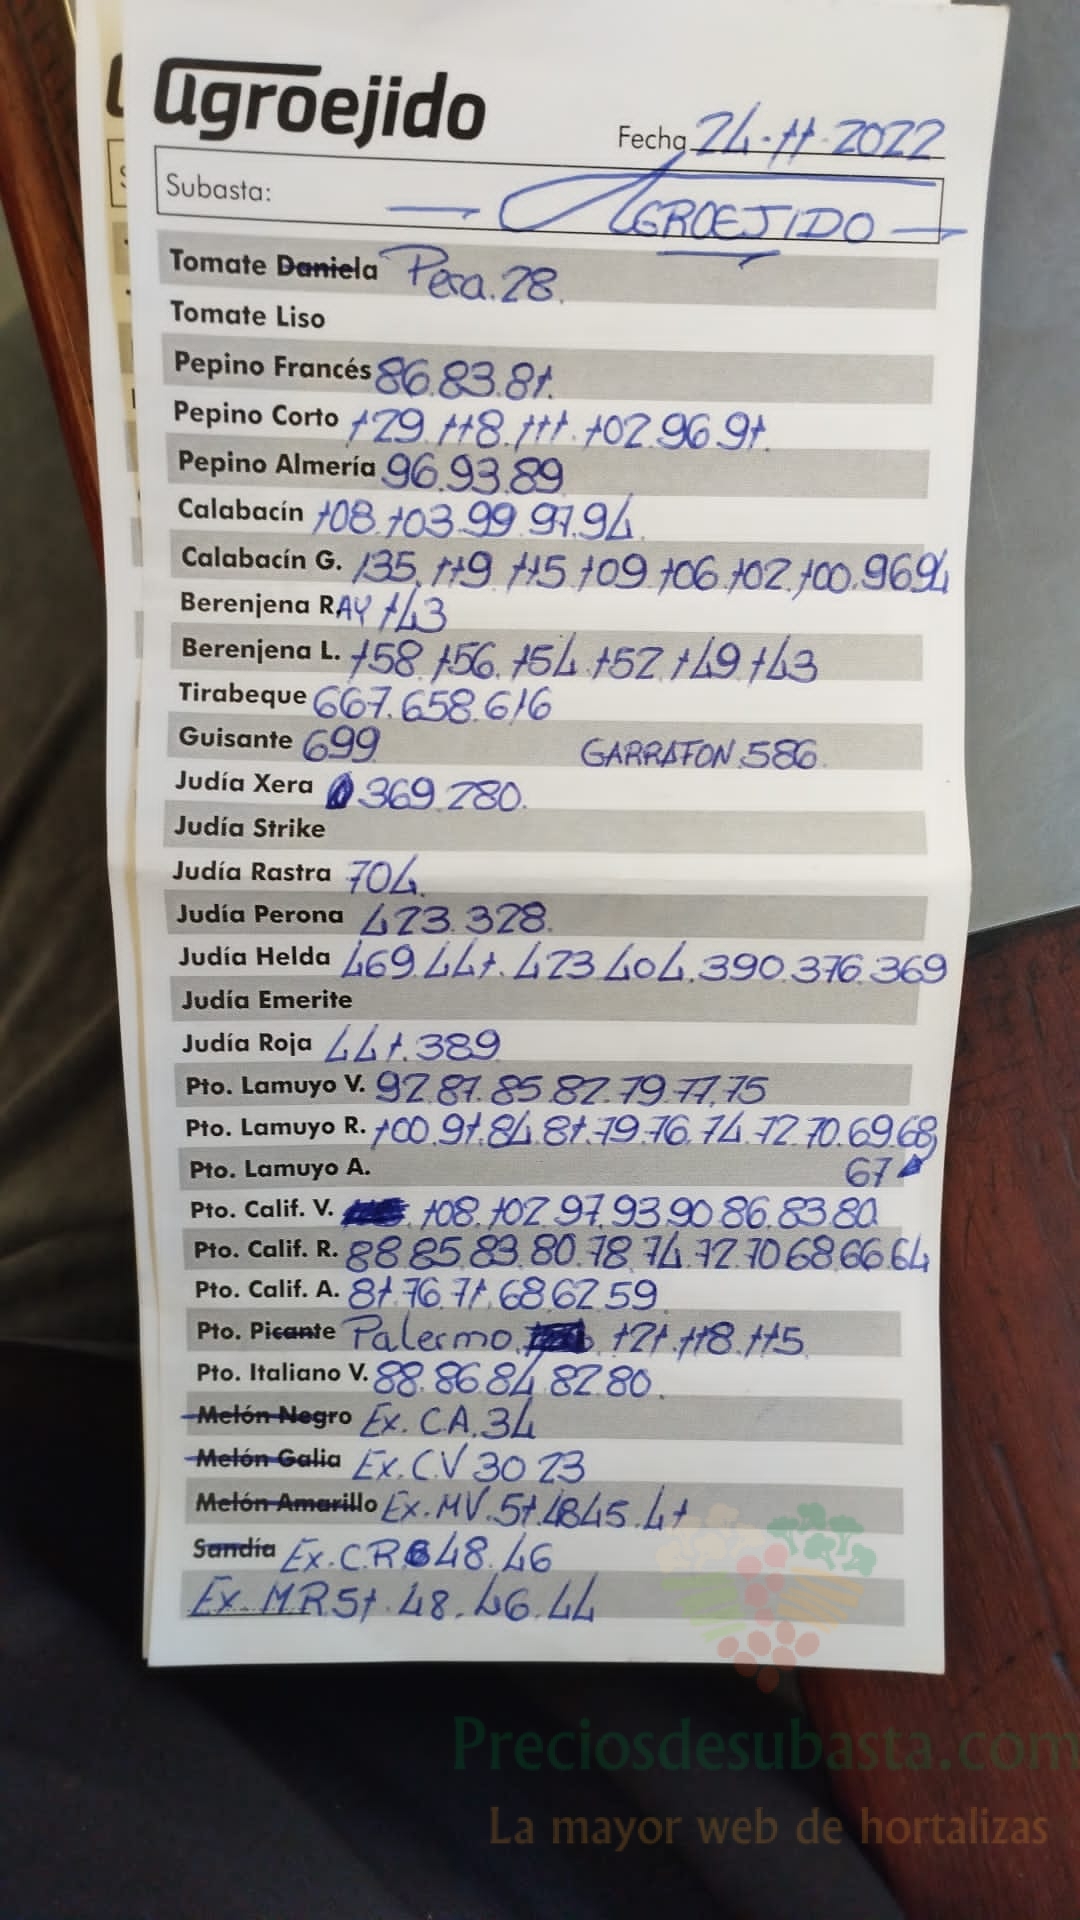 agroejido
Fecha 24-11-2022
Subasta: AGROEJIDO
Tomate Daniela Pera.28.
Tomate Liso
Pepino Francés 86.83.81.
Pepino Corto 129.118.111.102.96.91.
Pepino Almería 96.93.89
Calabacín 108.103.99.97.94.
Calabacín G. 135.119.115.109.106.102.100.96.94
Berenjena RAY 143
Berenjena L. 158.156.154.152.149.143
Tirabeque 667.658.616
Guisante 699 GARRAFON.586.
Judía Xera 369.280.
Judía Strike
Judía Rastra 704.
Judía Perona 423.328.
Judía Helda 469.441.423.404.390.376.369
Judía Emerite
Judía Roja 441.389
Pto. Lamuyo V. 92.87.85.82.79.77.75
Pto. Lamuyo R. 100.91.84.81.79.76.74.72.70.69.68
Pto. Lamuyo A. 67
Pto. Calif. V. 108.102.97.93.90.86.83.80
Pto. Calif. R. 88.85.83.80.78.74.72.70.68.66.64
Pto. Calif. A. 81.76.71.68.62.59
Pto. Picante Palermo. 121.118.115
Pto. Italiano V. 88.86.84.82.80.
Melón Negro Ex. C.A.34
Melón Galia Ex. C.V 30 23
Melón Amarillo Ex. MV.51.48.45.41
Sandía Ex. C.R 48.46
Ex. M R 51.48.46.44
Preciosdesubasta.com
La mayor web de hortalizas